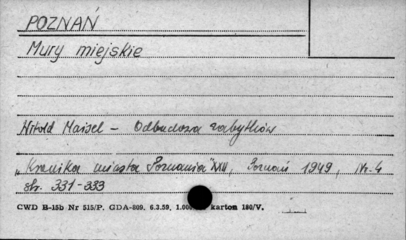 POZNAŃ
Mury miejskie
Witold Maisel - Odbudowa zabytków
„Kronika miasta Poznania" XXII, Poznań 1949, Nr. 4
str. 331-333
CWD B-15b Nr 515/P. GDA-809. 6.2.59. 1.000 karton 180/V.